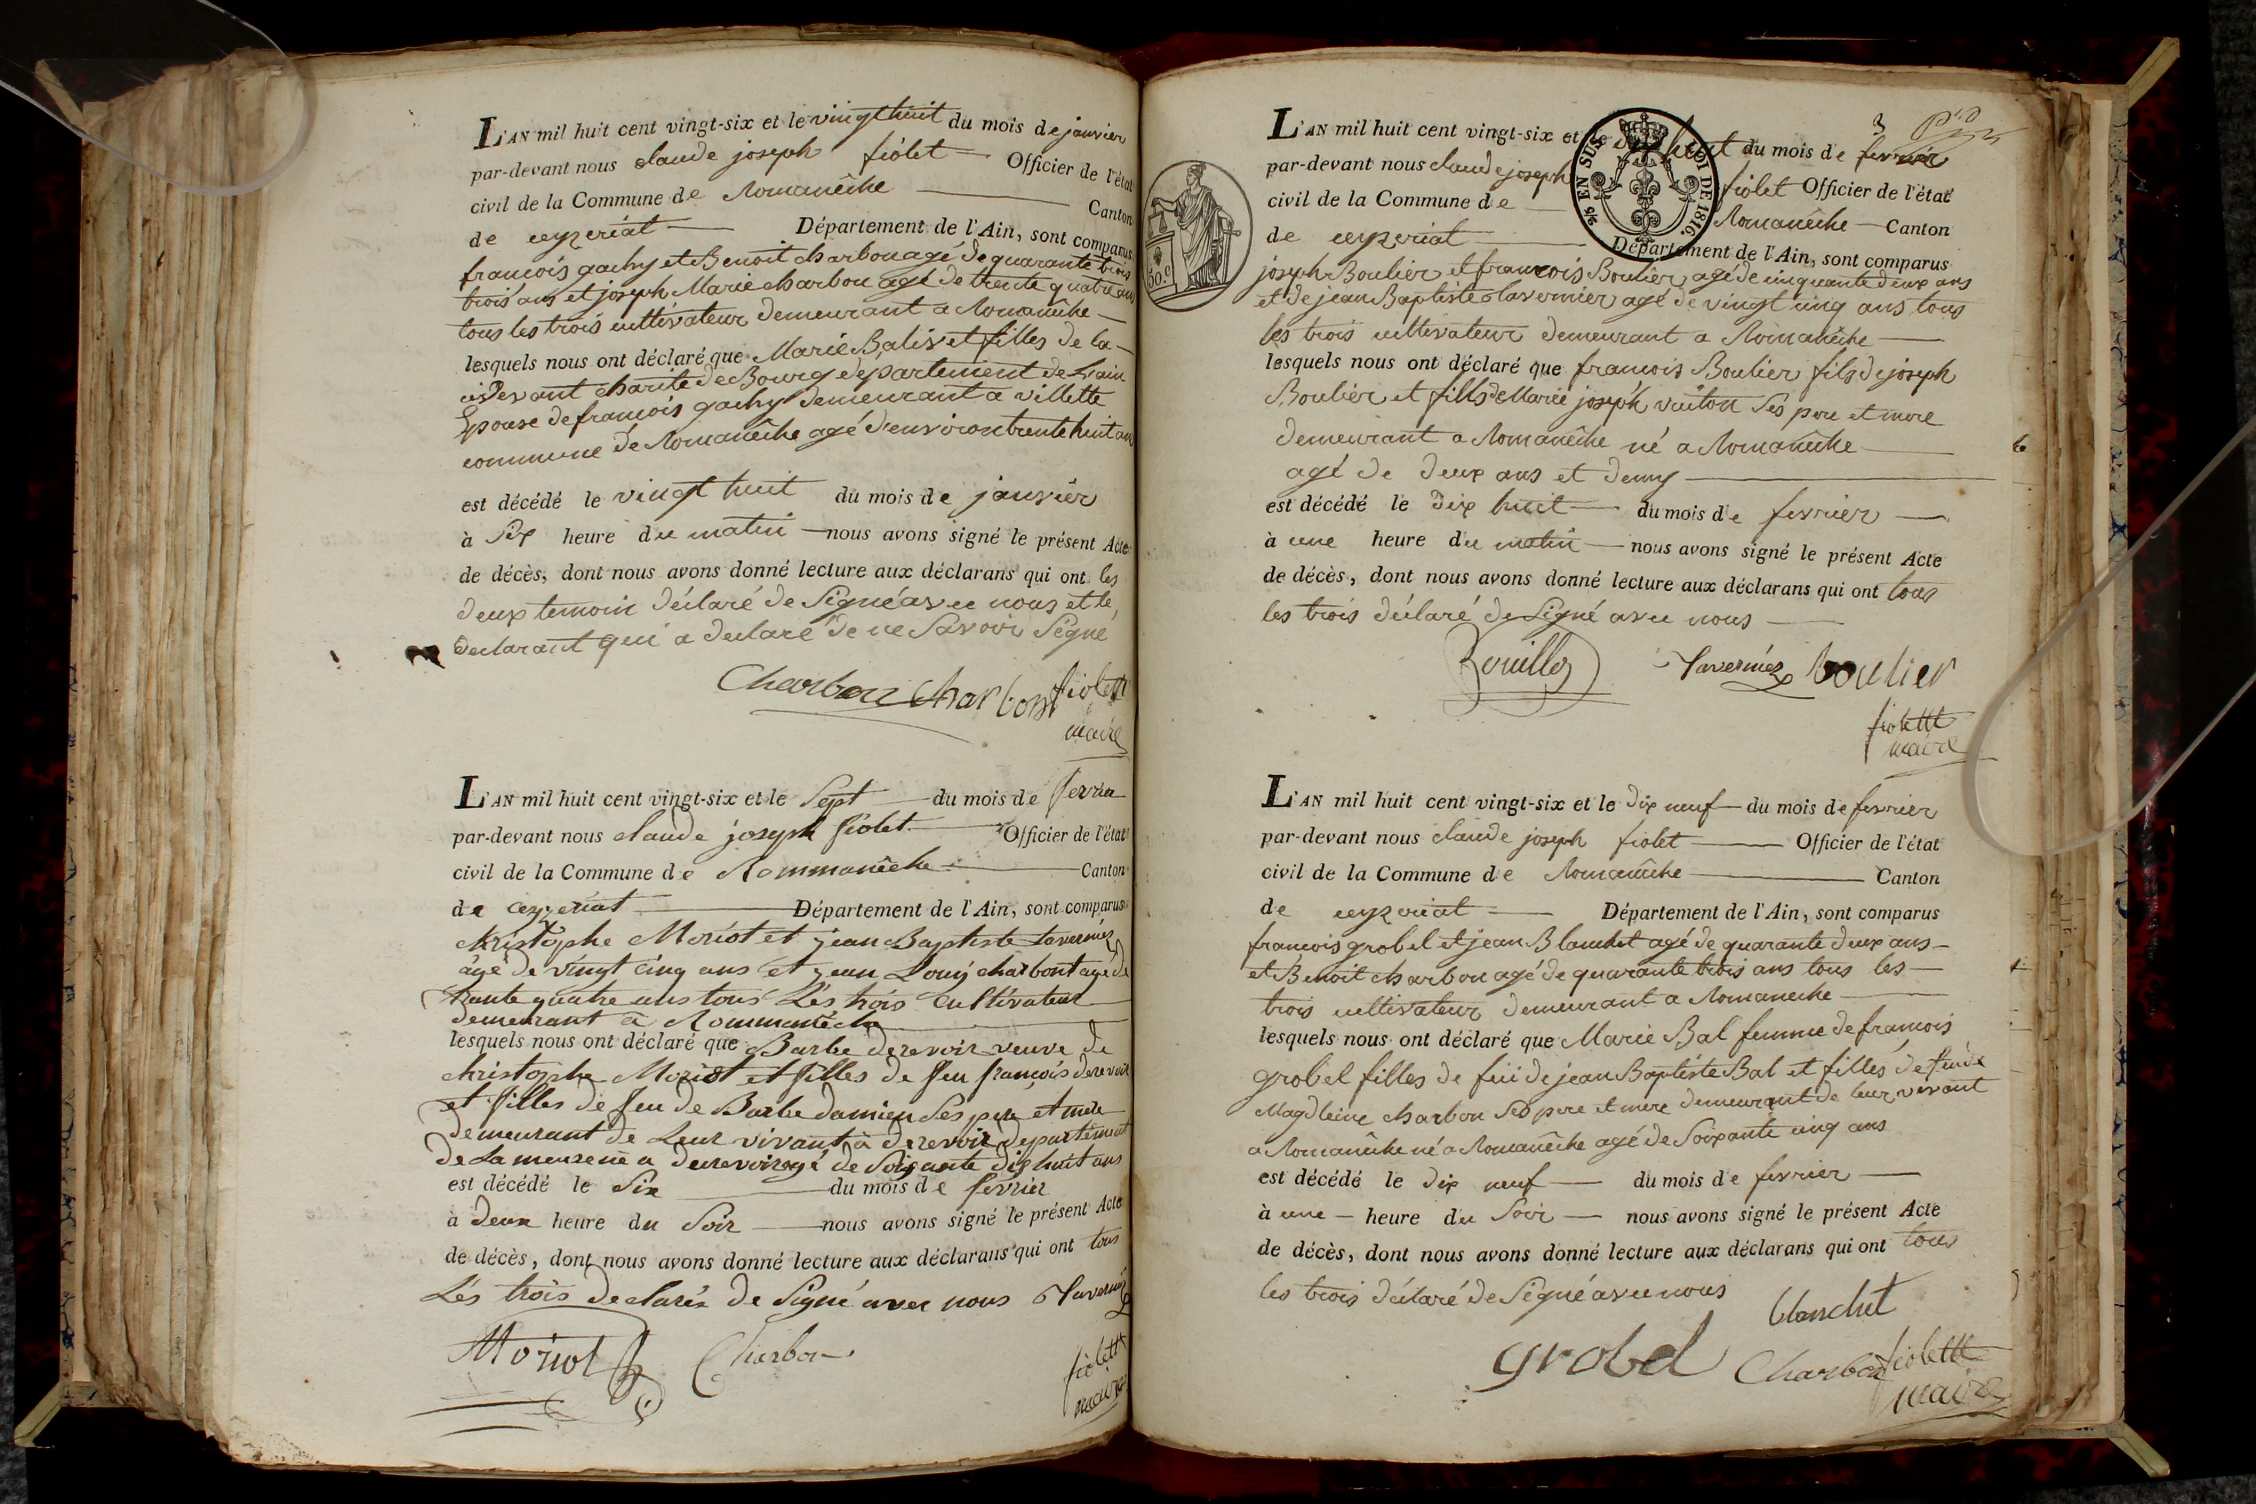 L'AN mil huit cent vingt-six et le vingt huit du mois de janvier
par-devant nous claude joseph fiolet Officier de l'état
civil de la Commune de Romanêche Canton
de ceyzeriat Département de l'Ain, sont comparus
francois gachy et Benoit charbon agé de quarante trois
trois ans et joseph Marie charbon agé de trente quatre ans
tous les trois cultivateur demeurant a Romanêche
lesquels nous ont déclaré que Marie Balivet filles de la
cidevant charité de Bourg departement de L'ain
Epouse de francois gachy demeurant a villette
commune de Romanêche agé d'environ trente huit ans
est décédé le vingt huit du mois de janvier
à Six heure du matin nous avons signé le présent Acte
de décès, dont nous avons donné lecture aux déclarans qui ont les
deux temoin déclaré de Signé avec nous et le
declarant qui a declaré de ne Savoir Signé
Charbon Charbon fiolett
maire
L'AN mil huit cent vingt-six et le Sept du mois de fevrier
par-devant nous claude joseph fiolet Officier de l'état
civil de la Commune de Rommanêche Canton
de ceyzeriat Département de l'Ain, sont comparus
christophe Moriot et jean Baptiste tavernier
agé de vingt cinq ans et jean Louis charbont agé de
trante quatre ans tous Lés trois cultivateur
demeurant a Rommanêche
lesquels nous ont déclaré que Barbe derevoir veuve de
christophe Moriot et filles de feu françois derevoir
et filles de feu de Barbe damien Ses pere et mere
demeurant de Leur vivant à derevoir departement
de La meuse né a derevoir agé de Soixante dix huit ans
est décédé le Six du mois de fevrier
à deux heure du Soir nous avons signé le présent Acte
de décès, dont nous avons donné lecture aux déclarans qui ont tous
Lés trois declarés de Signé avec nous Tavernier
Moriot Charbon fiolett
maire
3
L'AN mil huit cent vingt-six et le dix huit du mois de fevrier
par-devant nous claude joseph fiolet Officier de l'état
civil de la Commune de Romanêche Canton
de ceyzeriat Département de l'Ain, sont comparus
EN SUS LOI DE 1816.
50.c
joseph Boulier et francois Boulier agé de cinquante deux ans
et de jean Baptiste tavernier agé de vingt cinq ans tous
les trois cultivateur demeurant a Romanêche
lesquels nous ont déclaré que francois Boulier fils de joseph
Boulier et fills de Marie joseph vuiton Ses pere et mere
demeurant a Romanêche né a Romanêche
agé de deux ans et demy
est décédé le dix huit du mois de fevrier
à une heure du matin nous avons signé le présent Acte
de décès, dont nous avons donné lecture aux déclarans qui ont tous
les trois déclaré de Signé avec nous
Tavernier Boulier
fiolettt
maire
L'AN mil huit cent vingt-six et le dix neuf du mois de fevrier
par-devant nous claude joseph fiolet Officier de l'état
civil de la Commune de Romanêche Canton
de ceyzeriat Département de l'Ain, sont comparus
francois grobel et jean Blanchet agé de quarante deux ans
et Benoit charbon agé de quarante trois ans tous les
trois cultivateur demeurant a Romaneche
lesquels nous ont déclaré que Marie Bal femme de francois
grobel filles de feü de jean Baptiste Bal et filles de feüe de
Magdleine charbon Ses pere et mere demeurant de leur vivant
a Romanêche né a Romanêche agé de Soixante cinq ans
est décédé le dix neuf du mois de fevrier
à une heure du Soir nous avons signé le présent Acte
de décès, dont nous avons donné lecture aux déclarans qui ont tous
les trois déclaré de Signé avec nous
blanchet
grobel Charbon fiolettt
maire